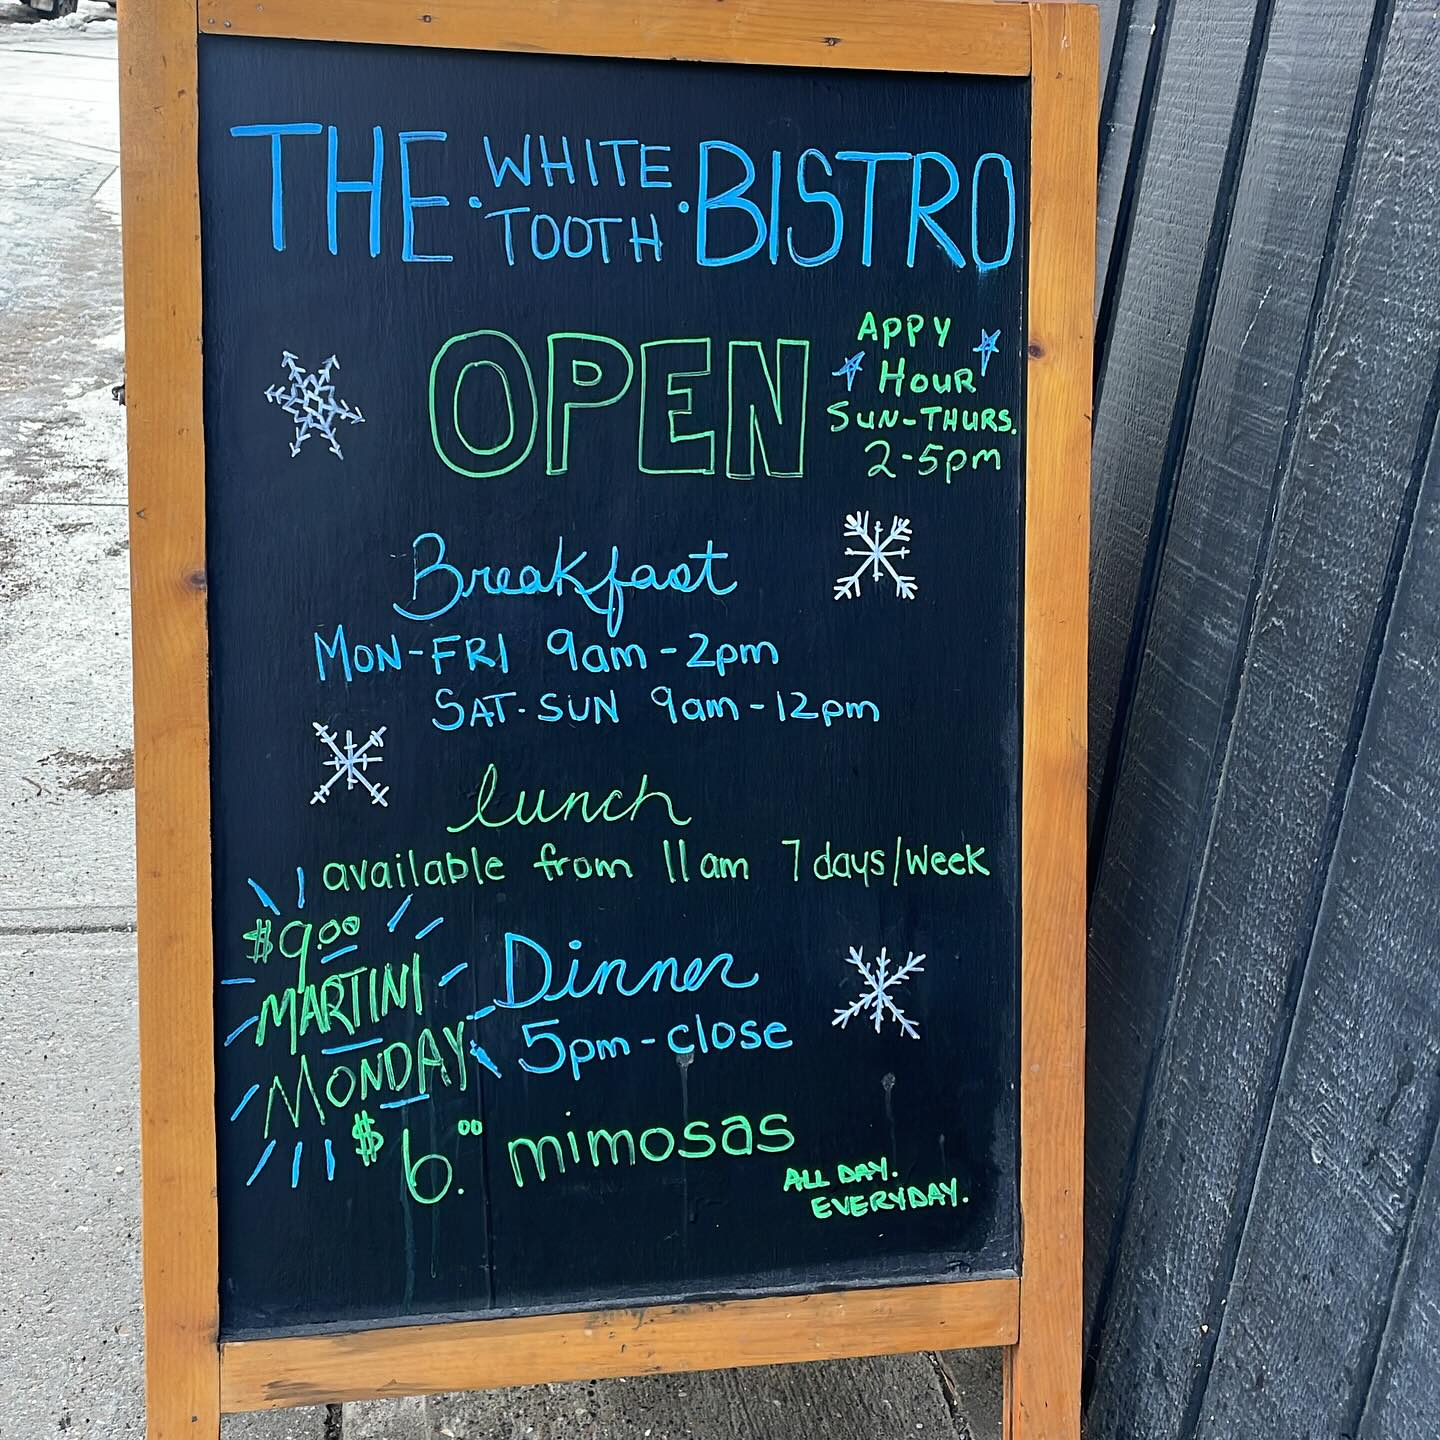 THE · WHITE TOOTH · BISTRO
OPEN
APPY
HOUR
SUN-THURS.
2-5pm
Breakfast
MON-FRI 9am-2pm
SAT-SUN 9am-12pm
lunch
available from 11am 7days/week
$9.00
MARTINI
MONDAY
Dinner
5pm-close
$6.00 mimosas
ALL DAY.
EVERYDAY.